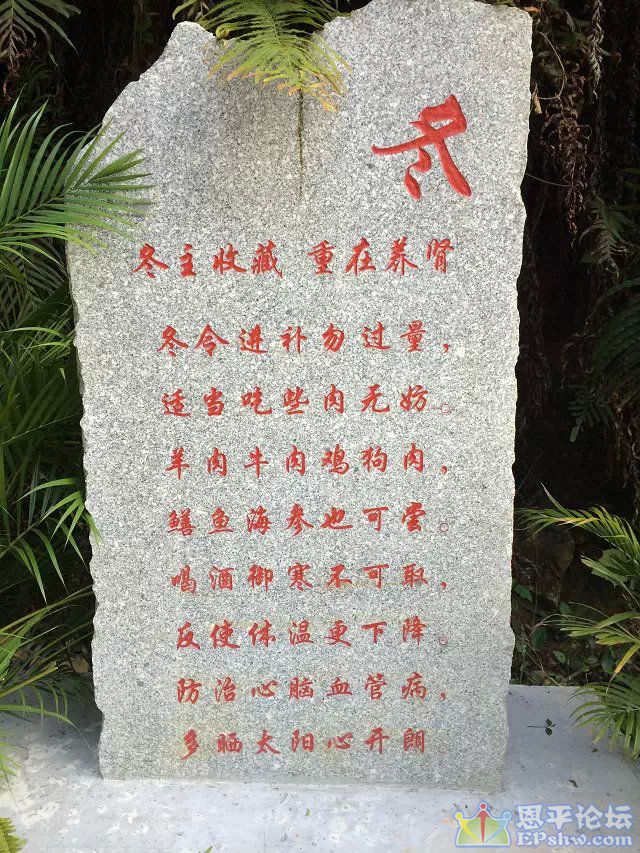 冬
冬主收藏 重在养肾
冬令进补勿过量，
适当吃些肉无妨。
羊肉牛肉鸡狗肉，
鳝鱼海参也可尝。
喝酒御寒不可取，
反使体温更下降。
防治心脑血管病，
多晒太阳心开朗。
恩平论坛
EPshw.com